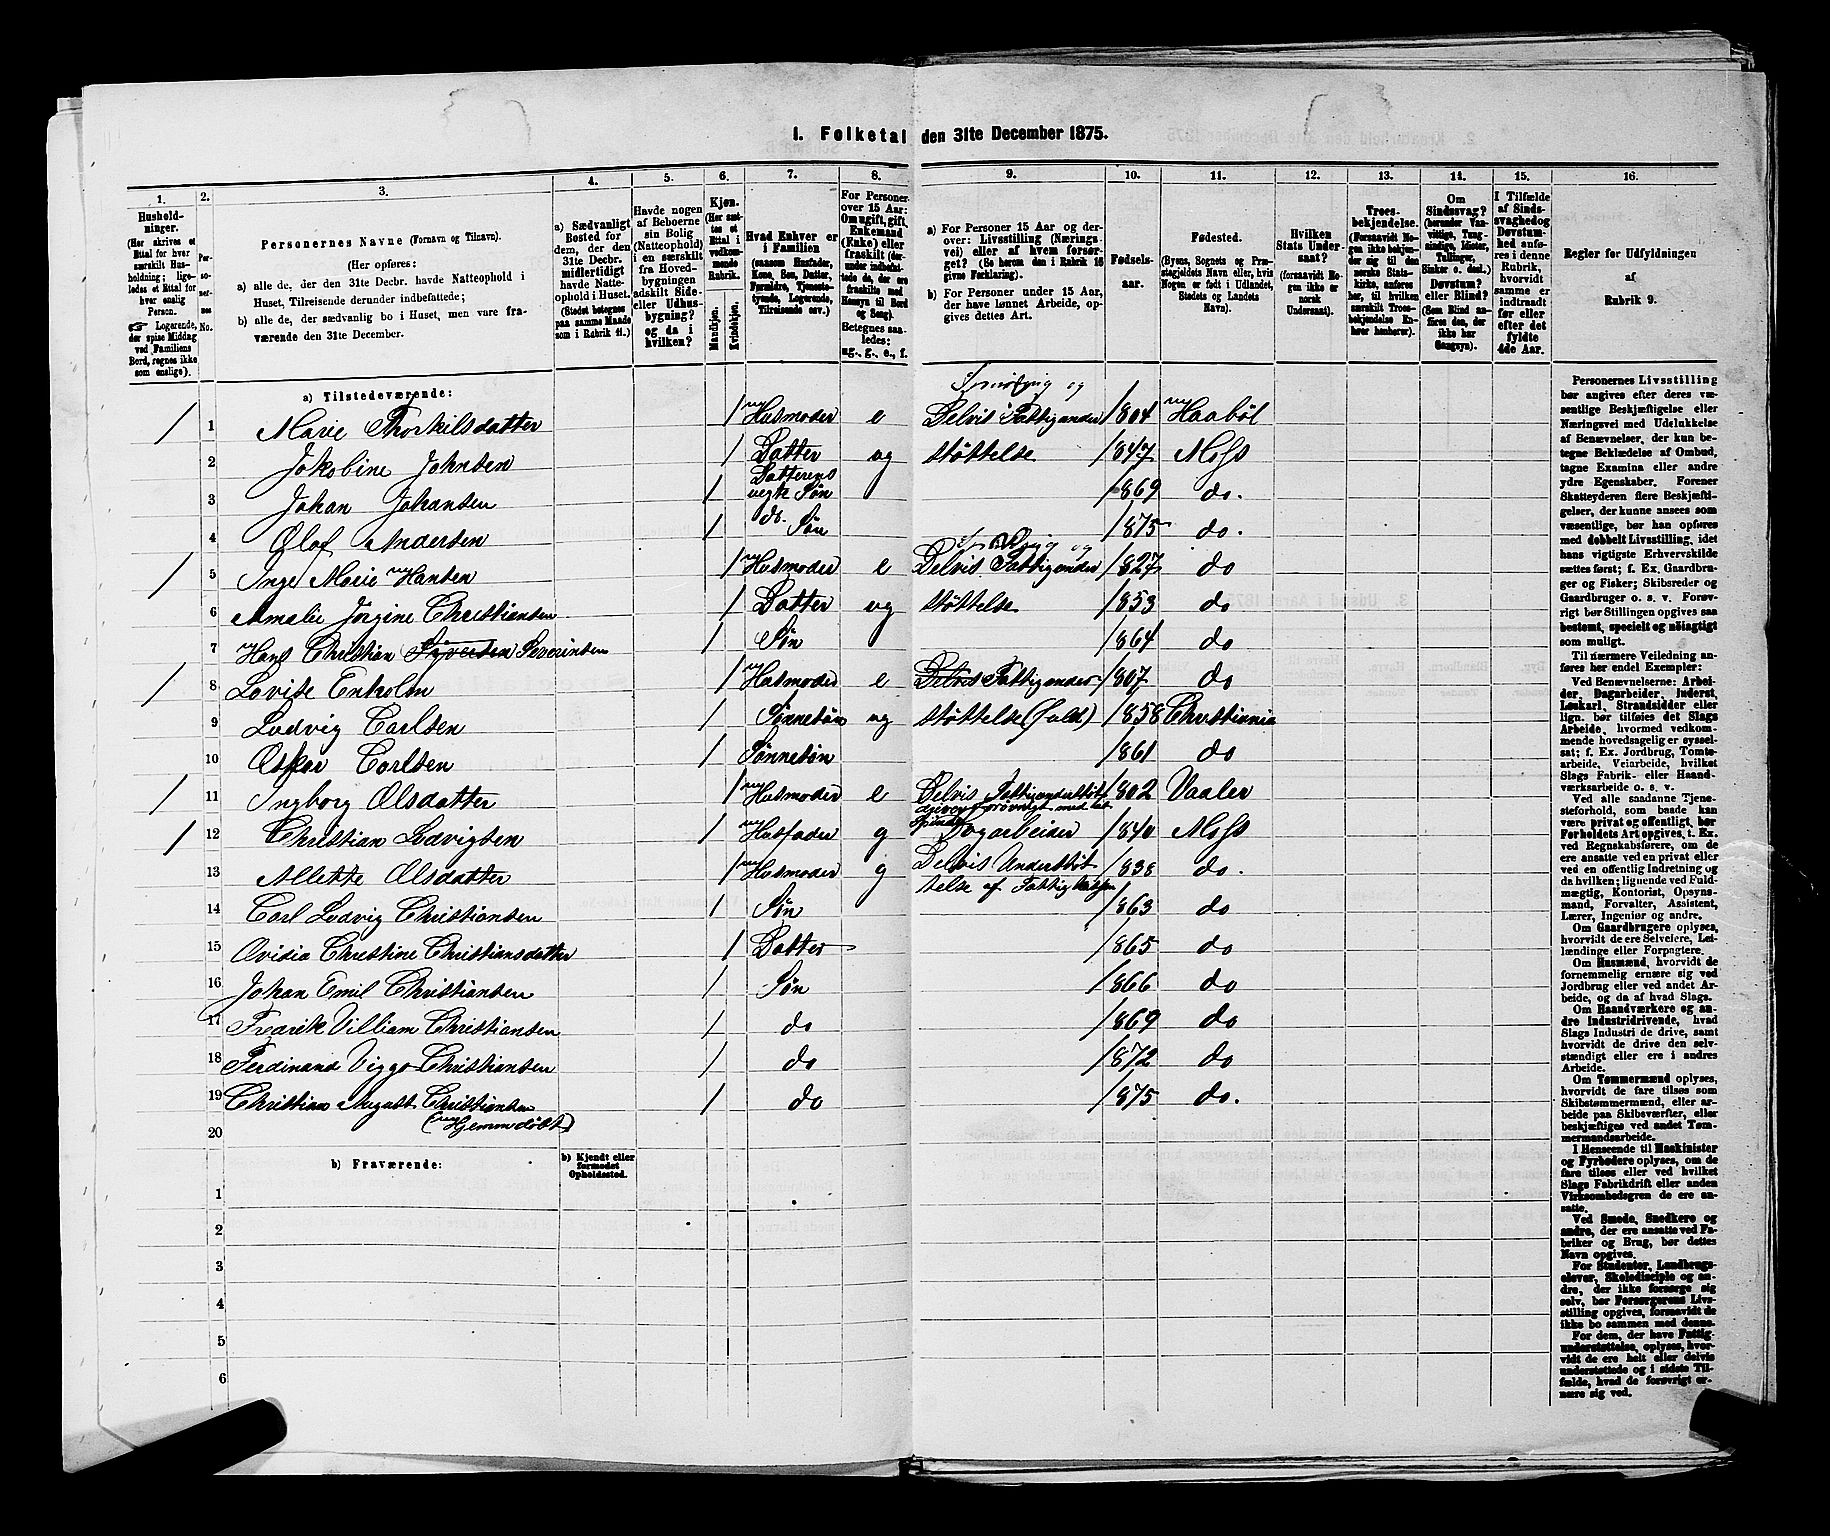 1. Folketal den 31te December 1875.
1. 2. 3. 4. 5. 6. 7. 8. 9. 10. 11. 12. 13. 14. 15. 16.
Hushold-
ninger.
(Her skrives et
Ettal for hver
særskilt Hus-
holdning; lige-
ledes et Ettal for
hver enslig
Person.
☞ Logerende,
der spise Middag
ved Familiens
Bord, regnes ikke
som enslige).
Personernes Navne (Fornavn og Tilnavn).
(Her opføres:
a) alle de, der den 31te Decbr. havde Natteophold i
Huset, Tilreisende derunder indbefattede;
b) alle de, der sædvanlig bo i Huset, men vare fra-
værende den 31te December.
a) Sædvanligt
Bosted for
dem, der den
31te Decbr.
midlertidigt
havde Natte-
ophold i Huset.
(Stedet betegnes
paa samme Maade
som i Rubrik 11.)
Havde nogen
af Beboerne
sin Bolig
(Natteophold)
i en særskilt
fra Hoved-
bygningen
adskilt Side-
eller Udhus-
bygning?
og da i
hvilken?
Kjøn.
(Her sæt-
tes et
Ettal i
vedkom-
mende
Rubrik.
Mandkjøn.
Kvindekjøn.
Hvad Enhver er
i Familien
(saasom Husfader,
Kone, Søn, Datter,
Forældre, Tjeneste-
tyende, Logerende,
Tilreisende osv.)
For Personer
over 15 Aar:
Om ugift, gift,
Enkemand
(Enke) eller
fraskilt
Betegnes saa-
ledes:
ug., g., e., f.
a) For Personer 15 Aar og der-
over: Livsstilling (Nærings-
vei) eller af hvem forsør-
get? (Se herom den i Rubrik 16
givne Forklaring).
b) For Personer under 15 Aar,
der have lønnet Arbeide, op-
gives dettes Art.
Fødsels-
aar.
Fødested.
(Byens, Sognets og Præ-
stegjeldets Navn eller, hvis
Nogen er født i Udlandet,
Stedets og Landets
Navn).
Hvilken
Stats Under-
saat?
(forsaavidt No-
gen ikke er
norsk
Undersaat).
Troes-
bekjendelse.
(Forsaavidt No-
gen ikke bekjen-
der sig til den
norske Stats-
kirke, anføres
her, til hvilken
særskilt Troes-
bekjendelse En-
hver henhører).
Om
Sindssvag?
(herunder Van-
vittige, Tung-
sindige, Idioter,
Tullinger,
Sinker o. desl.)
Døvstum?
eller Blind?
(Som Blind an-
føres den, der
ikke har
Gangsyn).
I Tilfælde
af Sinds-
svaghed og
Døvstum-
hed anfø-
res i denne
Rubrik,
hvorvidt
samme er
indtraadt
før eller
efter det
fyldte
4de Aar.
Regler for Udfyldningen
af
Rubrik 9.
a) Tilstedeværende:
1 1 Marie Thorkilsdatter 1 Husmoder e Delvis Fattigunder 1804 Haabøl
2 Jakobine Johnsen 1 Datter ug støttelse 1847 Moss
3 Johan Johansen 1 Søn 1869 do.
4 Olof Andersen 1 do. Søn 1875 do.
1 5 Inge Marie Hansen 1 Husmoder e Delvis Fattigunder 1827 do
6 Amalie Jørgine Christiansen 1 Datter ug støttelse 1853 do
7 Hans Christian Severinsen 1 Søn 1864 do
1 8 Lovise Enholm 1 Husmoder e Delvis Fattigunder 1807 do
9 Ludvig Carlsen 1 Sønnesøn ug støttelse (fuld) 1858 Christiania
10 Oskar Carlsen 1 Sønnesøn 1861 do
1 11 Ingborg Olsdatter 1 Husmoder e Delvis 1802 Vaaler
1 12 Christian Ludvigsen 1 Husfader g 1840 Moss
13 Allette Olsdatter 1 Husmoder g Delvis Understøt 1838 do.
telse af
14 Carl Ludvig Christiansen 1 Søn 1863 do
15 Ovidia Christine Christiansdatter 1 Datter 1865 do
16 Johan Emil Christiansen 1 Søn 1866 do
17 Fredrik Villiam Christiansen 1 do 1869 do
18 Ferdinand Viggo Christiansen 1 do 1872 do
19 Christian August Christiansen 1 do 1875 do.
(Hjemmdøbt)
20
b) Fraværende:
b) Kjendt eller
formodet
Opholdssted.
1
2
3
4
5
6
Personernes Livsstilling
bør angives efter deres væ-
sentlige Beskjæftigelse eller
Næringsvei med Udelukkelse
af Benævnelser, der kun be-
tegne Beklædelse af Ombud,
tagne Examina eller andre
ydre Egenskaber. Forener
Skatteyderen flere Beskjæfti-
gelser, der kunne ansees som
væsentlige, bør han opføres
med dobbelt Livsstilling, idet
hans vigtigste Erhvervskilde
sættes først; f. Ex. Gaardbru-
ger og Fisker; Skibsreder og
Gaardbruger o. s. v. Forøv-
rigt bør Stillingen opgives saa
bestemt, specielt og nøiagtigt
som muligt.
Til nærmere Veiledning an-
føres her endel Exempler:
Ved Benævnelserne: Arbei-
der, Dagarbeider, Inderst,
Løskarl, Strandsidder eller
lign. bør tilføies det Slags
Arbeide, hvormed vedkom-
mende hovedsagelig er syssel-
sat; f. Ex. Jordbrug, Tomte-
arbeide, Veiarbeide, hvilket
Slags Fabrik- eller Haand-
værksarbeide o. s. v.
Ved alle saadanne Tjene-
steforhold, som baade kan
være privat og offentligt, bør
Forholdets Art opgives, t. Ex.
ved Regnskabsførere, om de
ere ansatte ved en privat eller
ved en offentlig Indretning og
da hvilken; lignende ved Fuld-
mægtig, Kontorist, Opsyns-
mand, Forvalter, Assistent,
Lærer, Ingeniør og andre.
Om Gaardbrugere oplyses,
hvorvidt de ere Selveiere, Lei-
lændinge eller Forpagtere.
Om Husmænd, hvorvidt de
fornemmelig ernære sig ved
Jordbrug eller ved andet Ar-
beide, og da af hvad Slags.
Om Haandværkere og an-
dre Industridrivende, hvad
Slags Industri de drive, samt
hvorvidt de drive den selv-
stændigt eller ere i andres
Arbeide.
Om Tømmermænd oplyses,
hvorvidt de fare tilsøs som
Skibstømmermænd, eller ar-
beide paa Skibsværfter, eller
beskjæftiges ved andet Tøm-
mermandsarbeide.
I Henseende til Maskinister
og Fyrbødere oplyses, om de
fare tilsøs eller ved hvilket
Slags Fabrikdrift eller anden
Virksomhedsgren de ere an-
satte.
Ved Smede, Snedkere og
andre, der ere ansatte ved Fa-
briker og Brug, bør dettes
Navn opgives.
For Studenter, Landbrugs-
elever, Skoledisciple og an-
dre, der ikke forsørge sig
selv, bør Forsørgerens Livs-
stilling opgives, forsaavidt de
ikke bo sammen med denne.
For dem, der have Fattig-
understøttelse, oplyses, hvor-
vidt de ere helt eller delvis
understøttede og i sidste Til-
fælde, hvad de forøvrigt er-
nære sig ved.